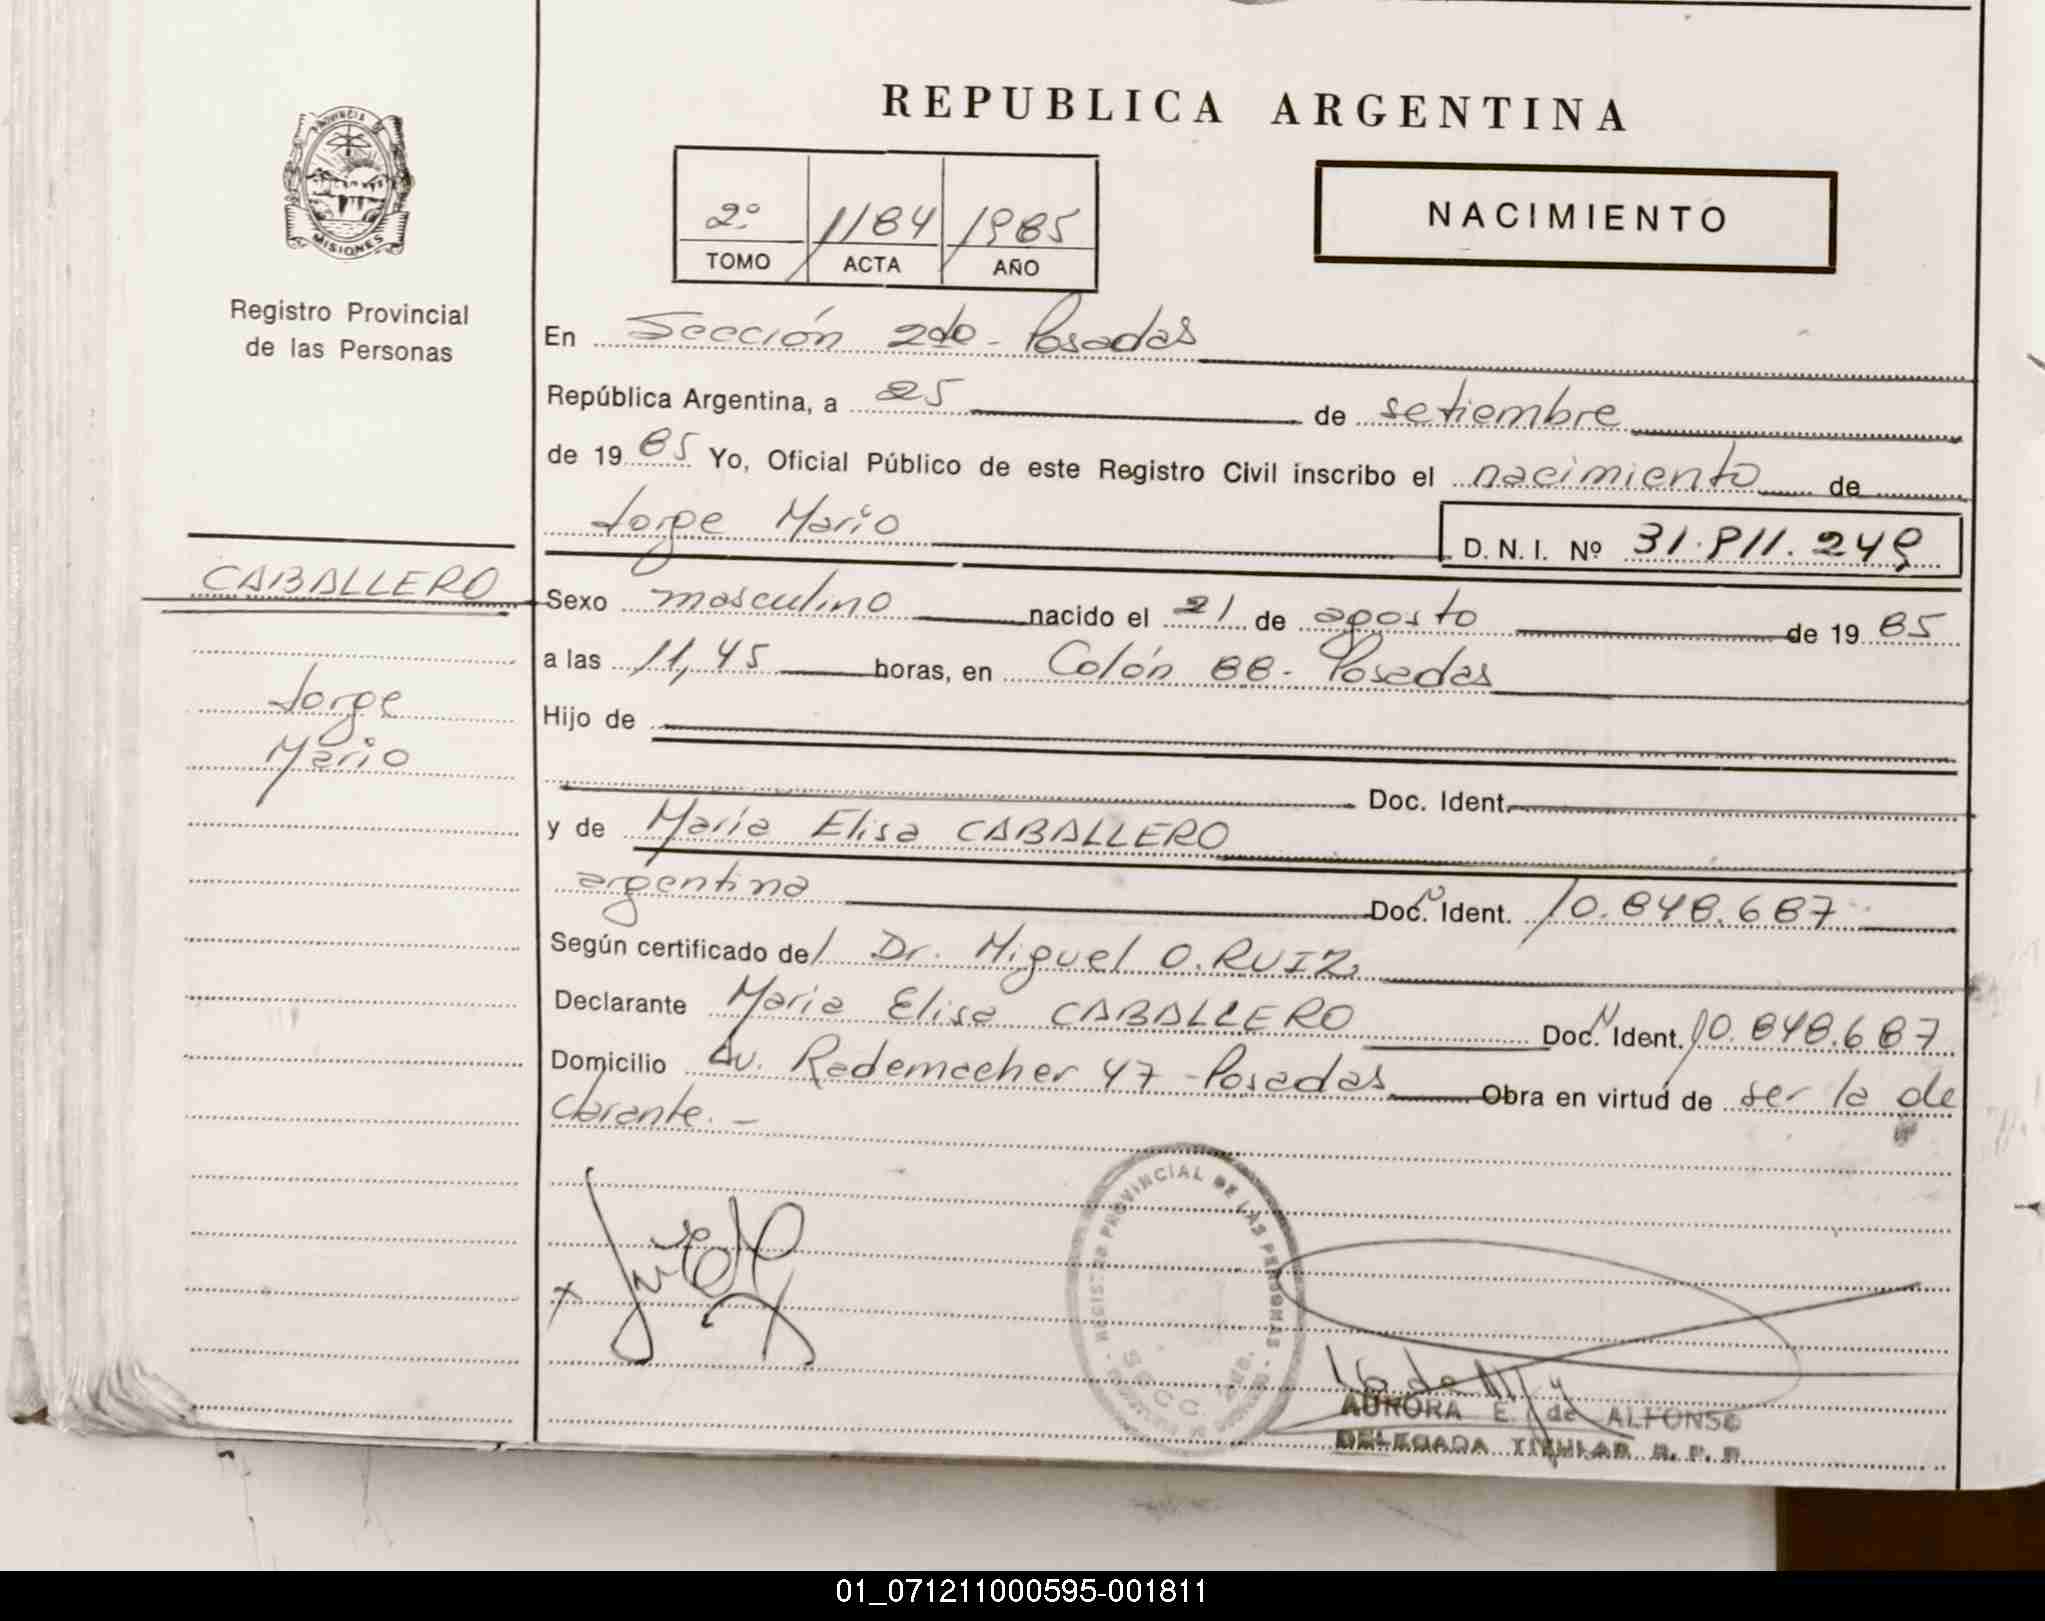 REPUBLICA ARGENTINA
PROVINCIA DE
MISIONES
Registro Provincial
de las Personas
2º 1184 1985
TOMO ACTA AÑO
NACIMIENTO
En Sección 2da - Posadas
República Argentina, a 25 de setiembre
de 1985 Yo, Oficial Público de este Registro Civil inscribo el nacimiento de
Jorge Mario D. N. I. Nº 31.811.249
CABALLERO
Jorge
Mario
Sexo masculino nacido el 21 de agosto de 1985
a las 11,45 horas, en Colón 88 - Posadas
Hijo de
Doc. Ident.
y de María Elisa CABALLERO
argentina Doc. N Ident. 10.848.687
Según certificado del Dr. Miguel O. RUIZ
Declarante María Elisa CABALLERO Doc. N Ident. 10.848.687
Domicilio Av. Rademacher 47 - Posadas Obra en virtud de ser la de
clarante. -
x
REGISTRO PROVINCIAL DE LAS PERSONAS
SECC.
AURORA E. de ALFONSO
DELEGADA TITULAR R. P. P.
01_071211000595-001811